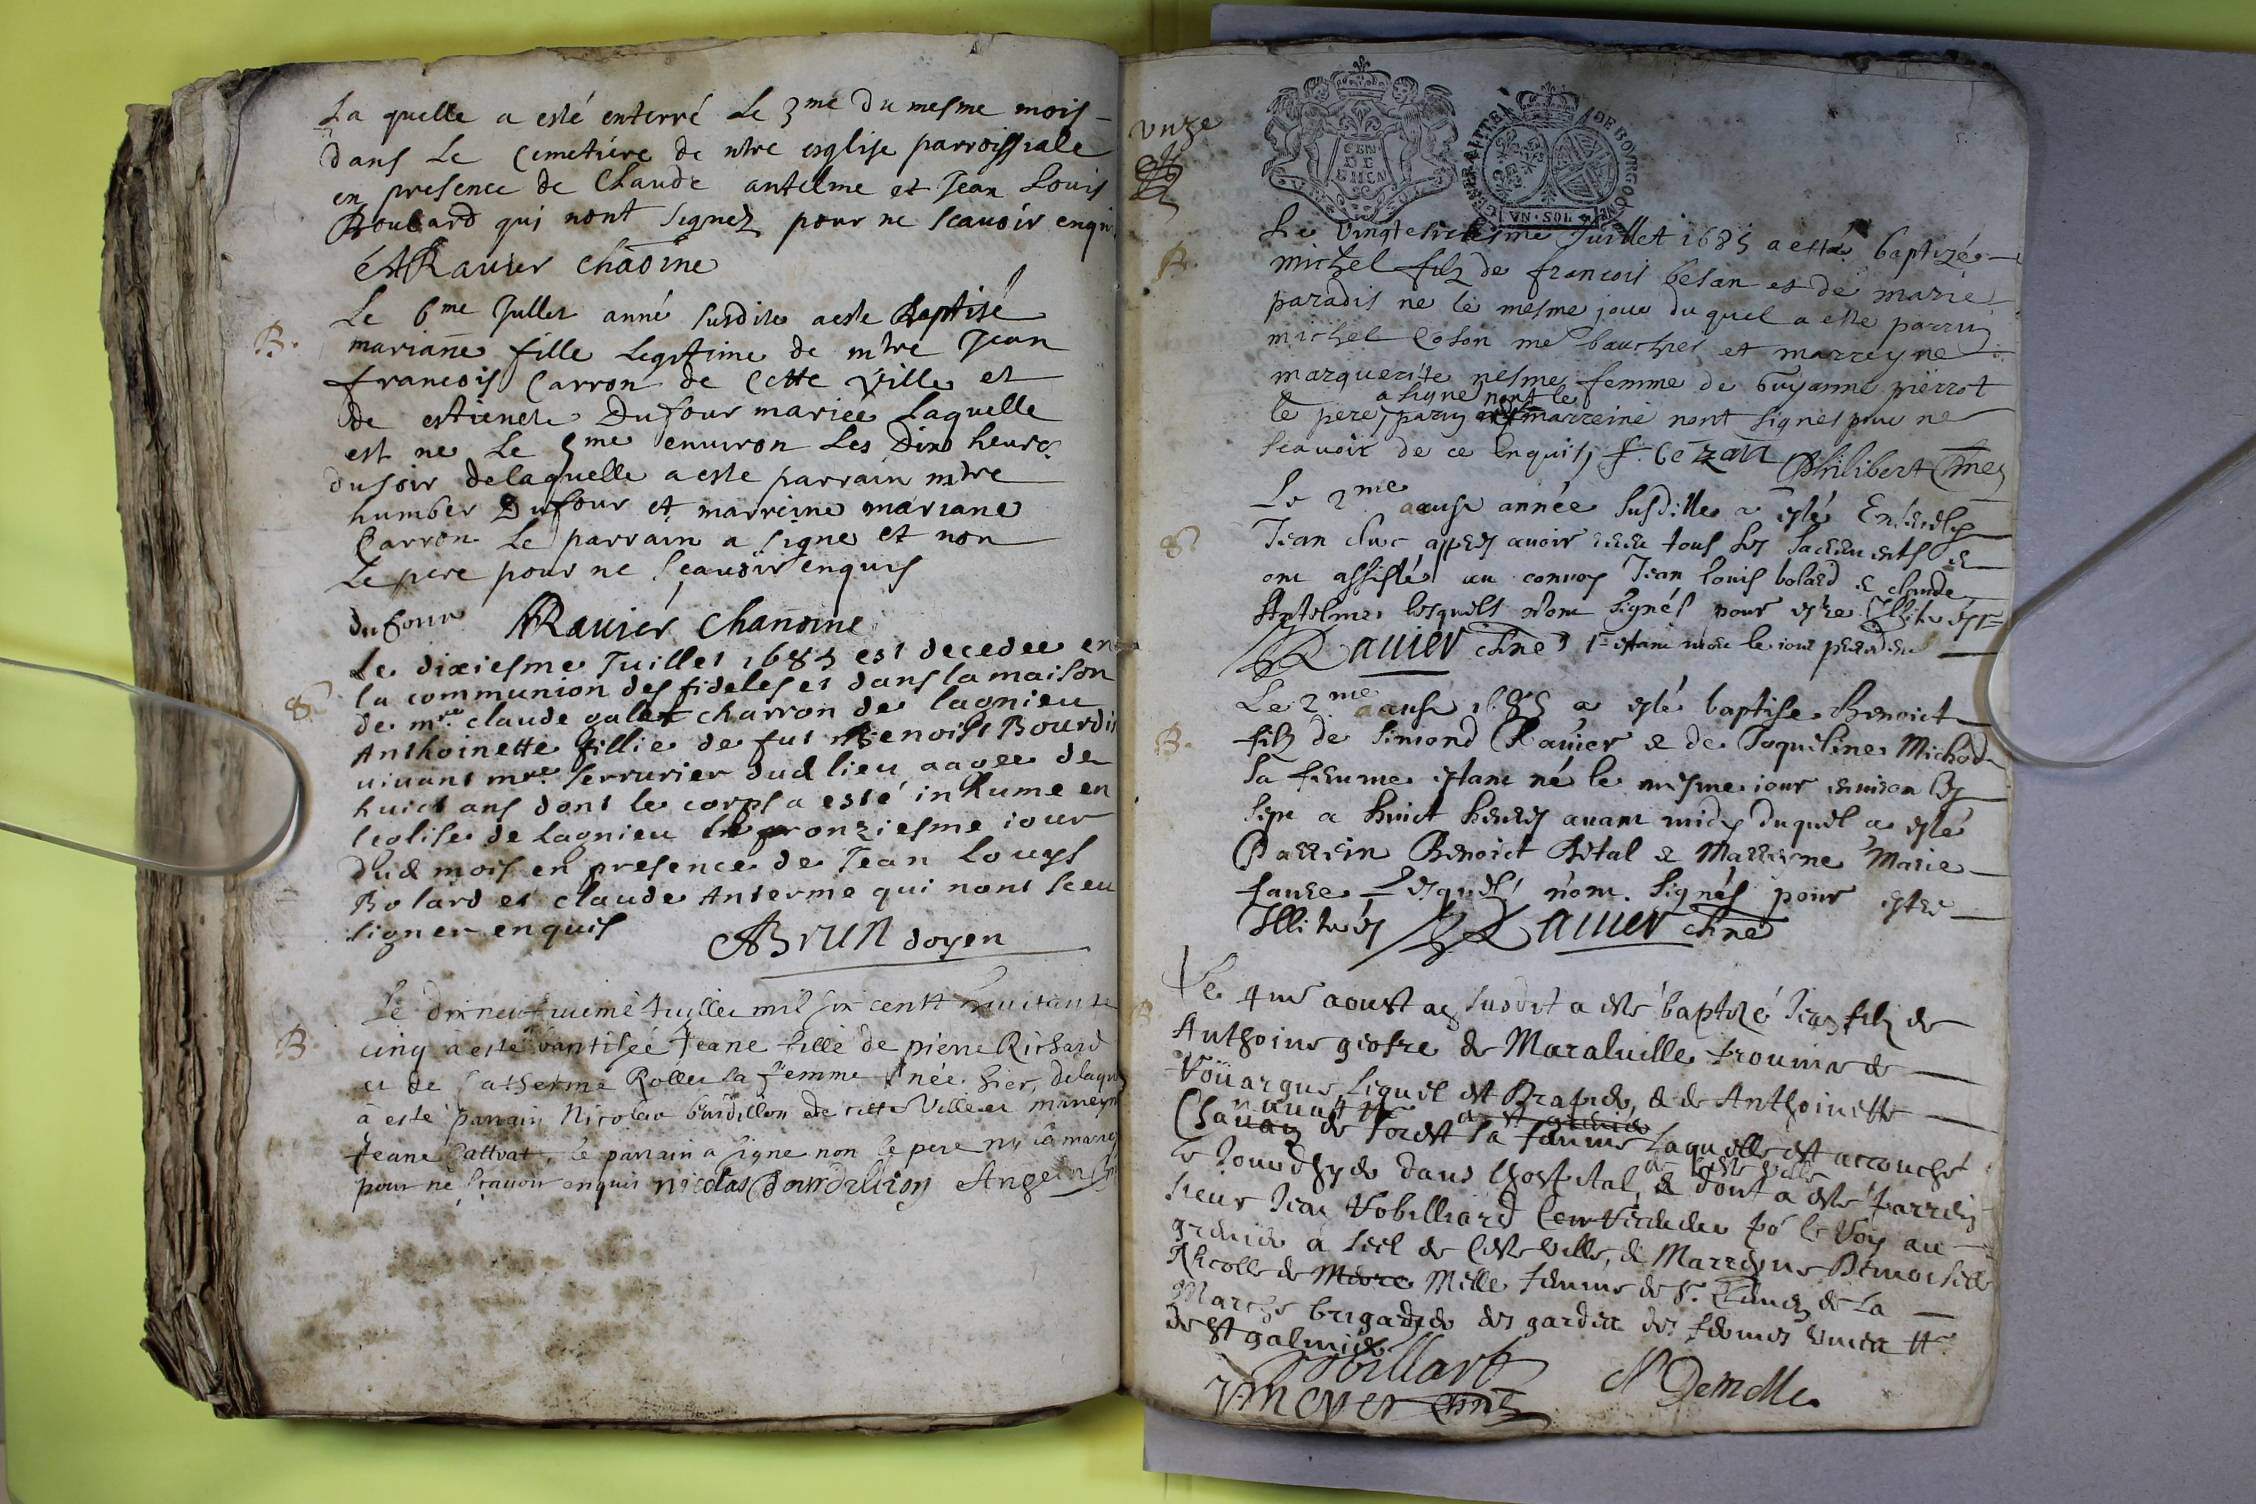 La quelle a esté enterré Le 3me Du mesme mois
dans Le Cemetiére de ntre esglise parroissiale
en presence de Claude antelme et Jean Louis
Boulard qui nont signez pour ne scavoir enqui
Ravier chaõine
B.
Le 6me Jullet anné susdite a este Baptisé
mariane fille Legitime de mtre Jean
francois Carron de Cette Ville et
de estienete Dufour mariée Laquelle
est ne Le 5me environ Les Dix heures
du soir delaquelle a este parrain mtre
humber Dufour et marreine mariane
Carron Le parrain a signe et non
Le pere pour ne sçauoir enquis
dufour Ravier Chanoine
S.
Le dixiesme Juillet 1685 est decedee en
la communion des fideles et dans la maison
de mre claude galet charron de lagnieu
Anthoinette fillie de fut Benoist Bourdi
uivant mre serrurier dud lieu aagee de
huict ans dont le corps a esté inhume en
leglise de Lagnieu le onziesme iour
dud mois en presence de Jean Louys
Bolard et claude Anterme qui nont sceu
signer enquis
ABrun doyen
B.
Le dixneufvieme Juillet mil six centt huitante
cinq à esté bantisée Jeane fille de pierre Richard
et de Catherine Rollet sa femme née hier, delaqu
à esté parrain Nicolau burdillon de cette Ville et mareyn
Jeane Cattrat, le parrain a signe non le pere ny la marre
pour ne sçavoir enquis nicolas Bourdillion
unze
GEN DE
GENER
DE BOURGOGNE
UN · SOL
B.
Le Vingtesiesme Juillet 1685 a esté baptizé
michel filz de francois besan et de marie
paradis ne le mesme jour du quel a este parrin
michel Coson me baucher et marreyne
marguerite nesme femme de Guyanme pierrot
a signe nont le
le pere, parin marreine nont signes pour ne
scauoir de ce Enquis, f. Cezan Philibert Chne
S.
Le 2me aoust année susditte a esté Enterely
Jean Cluc apres avoir receu tous les sacrements et
ont assistés au convoy Jean louis bolard et claude
Antelme lesquels nont signés pour estre Illiterés
Ravier chne estant mort le iour precedent
B.
Le 2me aoust 1685 a esté baptisé Benoict
filz de Simond Ravier et de Jaqueline Michod
sa femme estant né le mesme iour environ les
sept a huict heures avant midy duquel a esté
Parrein Benoict Vital et Marreyne Marie
faure Lesquels nont signés pour estre
Illiterés Ravier chne
B
Le 4me aoust an susdit a esté baptizé Jean filz de
Anthoine giofre de Maraluille prouince de
Voüargue, Lequel est Brapido, et de Anthoinette
Chauan de forest sa femme Laquelle est accouché
de ceste ville
le Jourdhuy dans lhospital, et dont a esté parrein
sieur Jean Robilliard Controlleur po le Roy au
grenier à seel de ceste ville, et Marreyne Dlmoiselle
Nicolle de Melle femme de Sr Edme de La
Marche brigadier des gardes des fermes unies
de St galmier
Robillart N Demelle